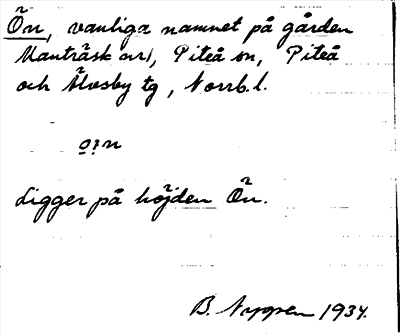 Ön, vanliga namnet på gården
Manträsk nr 1, Piteå sn, Piteå
och Älvsby tg, Norrb. l.
o:n
Ligger på höjden Ön.
B. Nygren 1934.